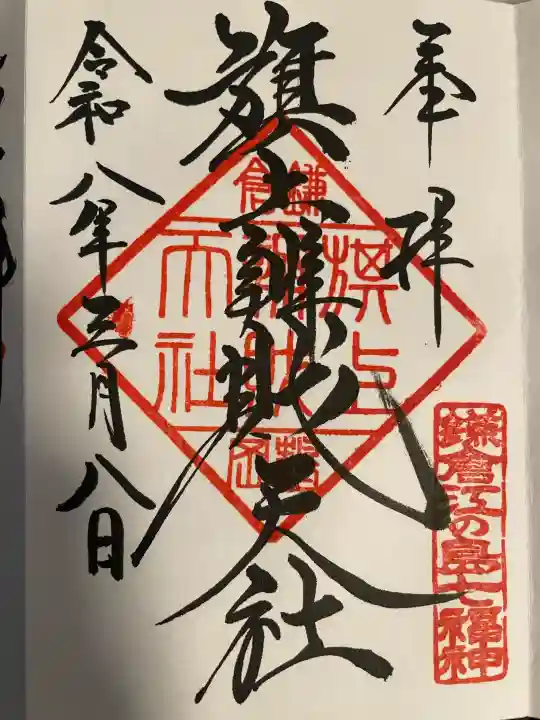 奉拝
鎌倉江の島七福神
旗上辨財天社
鎌倉
旗上
辨財
天社
令和八年三月八日